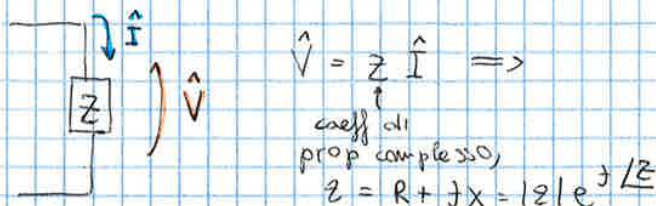 Î
Z
V̂
V̂ = Z Î =>
↑
coeff di
prop complesso,
Z = R + jX = |Z| e^j∠Z